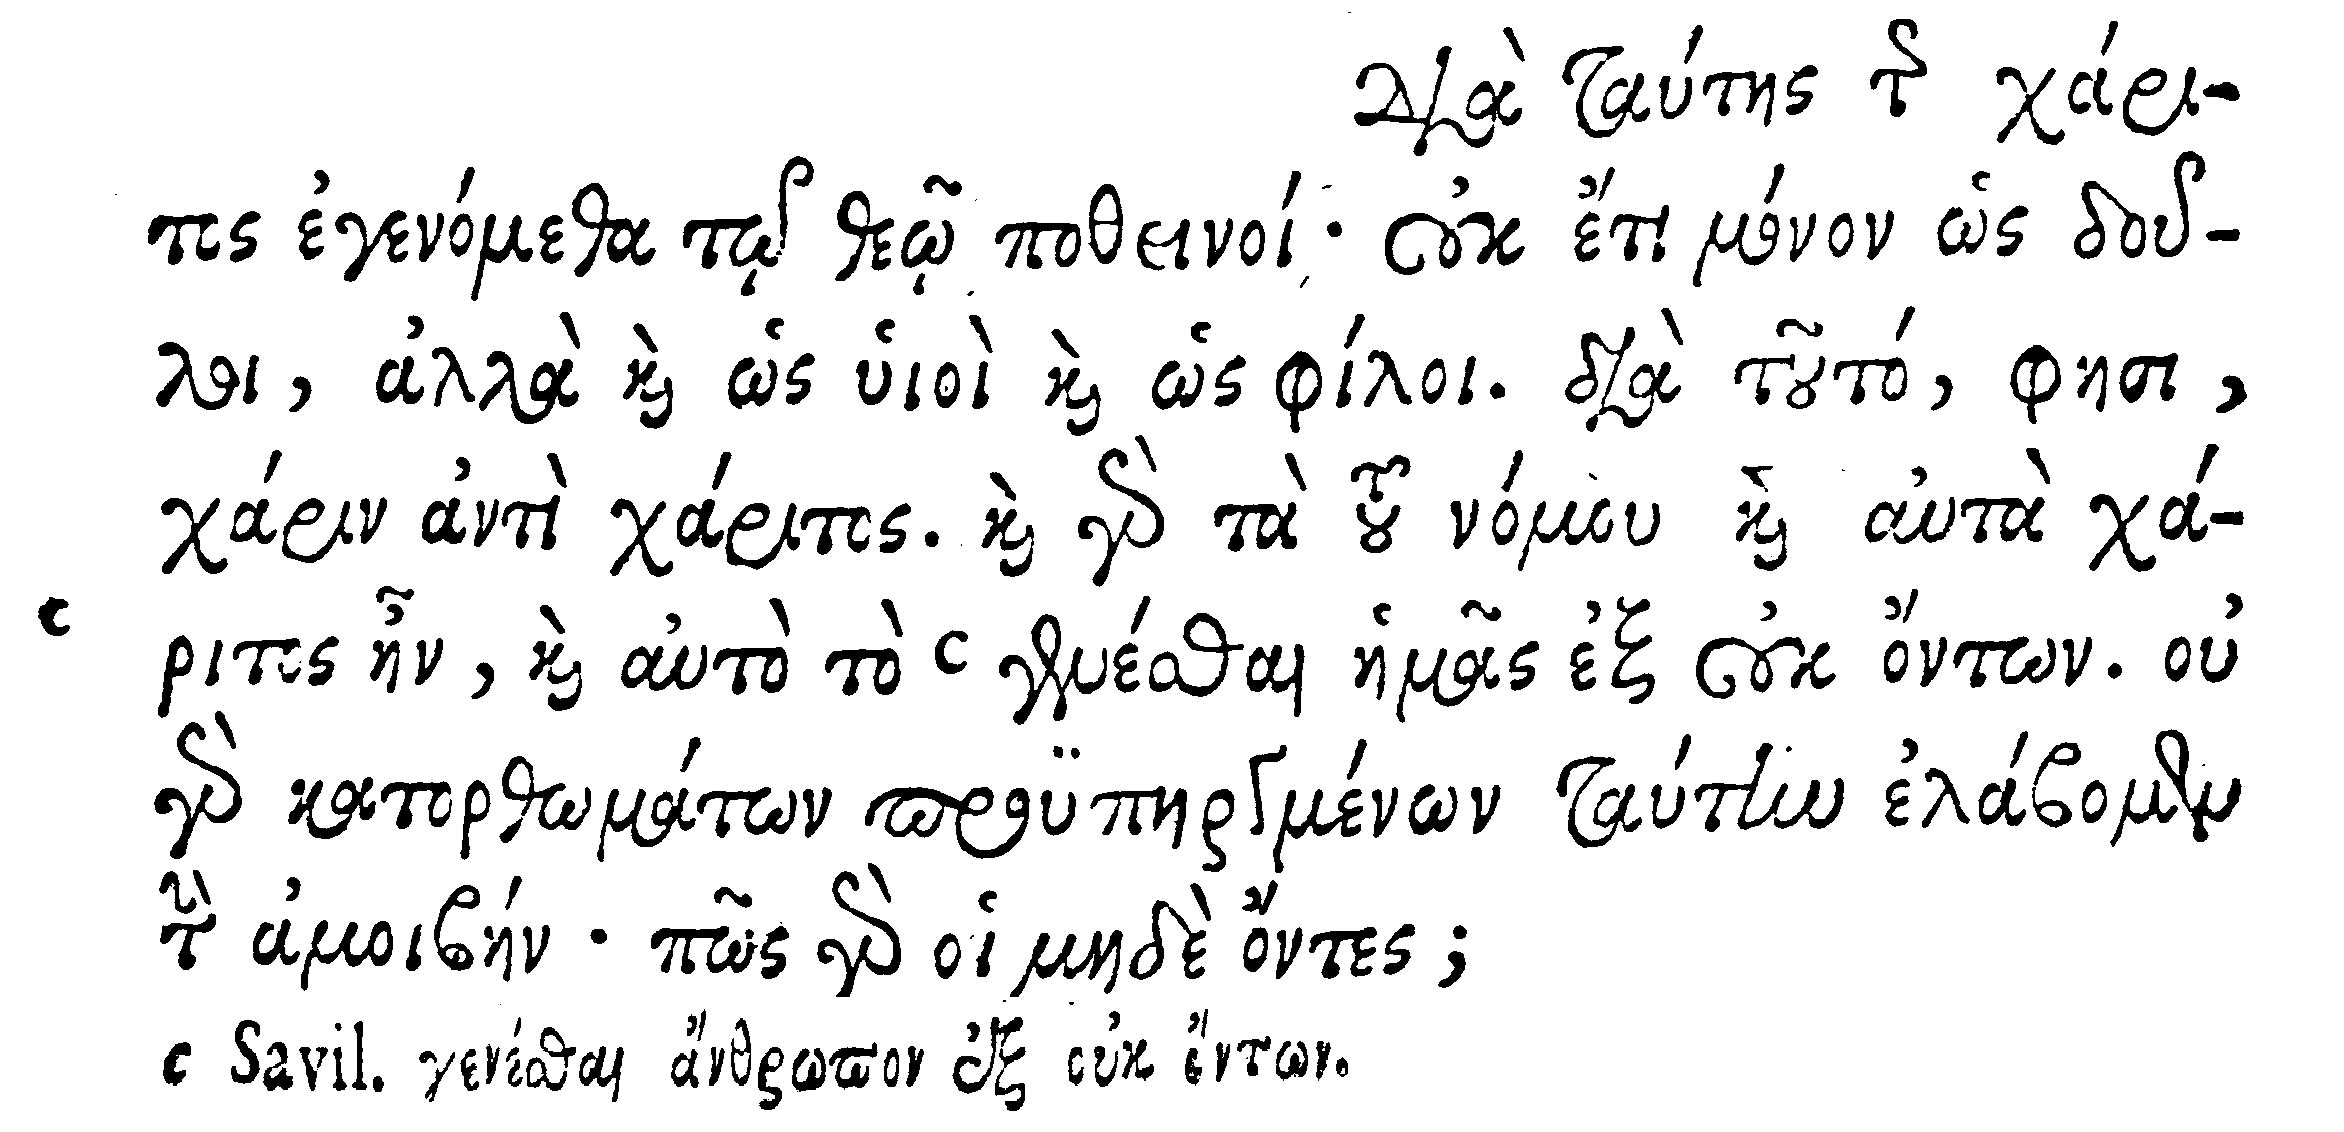 Διὰ ταύτης τῆς χάρι-
τος ἐγενόμεθα τῷ θεῷ ποθεινοί· οὐκ ἔτι μόνον ὡς δοῦ-
λοι, ἀλλὰ καὶ ὡς υἱοὶ καὶ ὡς φίλοι. διὰ τοῦτό, φησι,
χάριν ἀντὶ χάριτος. καὶ γὰρ τὰ τοῦ νόμου καὶ αὐτὰ χά-
c ριτος ἦν, καὶ αὐτὸ τὸ c γενέσθαι ἡμᾶς ἐξ οὐκ ὄντων. οὐ
γὰρ κατορθωμάτων προϋπηργμένων ταύτην ἐλάβομεν
τὴν ἀμοιβήν· πῶς γὰρ οἱ μηδὲ ὄντες;
c Savil. γενέσθαι ἄνθρωπον ἐξ οὐκ ὄντων.